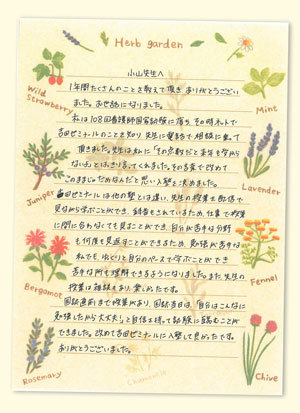 Herb garden
小山先生へ
1年間たくさんのことを教えて頂きありがとうござい
ました。お世話になりました。
私は108回看護師国家試験に落ち、その時ネットで
吉田ゼミナールのことを知り先生に電話で相談に乗って
頂きました。先生は私に「その点数だと来年も受から
ない」とはっきり言ってくれました。その言葉で改めて
このままじゃだめなんだと思い入塾を決めました。
吉田ゼミナールは他の塾とは違い、先生の授業を配信で
見ながら学ぶことができ、録画もされているため、仕事で授業
に間に合わなくても見ることができ、自分が苦手な分野
も何度も見返すことができるため、勉強が苦手な
私でも、ゆっくりと自分のペースで学ぶことができ
苦手な所も理解できるようになりました。また、先生の
授業は雑談もあり楽しめたです。
国試直前まで授業があり、国試当日は、「自分はこんなに
勉強したから大丈夫！」と自信を持って試験に臨むことが
できました。改めて吉田ゼミナールに入塾して良かったです。
ありがとうございました。
Wild Strawberry
Mint
Juniper
Lavender
Bergamot
Fennel
Rosemary
Chamomile
Chive